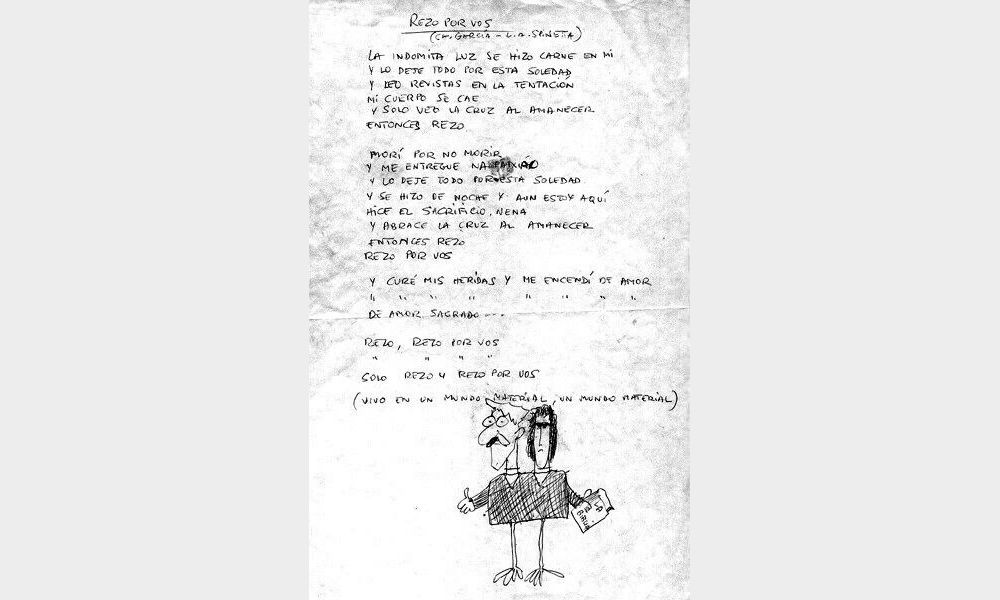 REZO POR VOS
(CH. GARCIA - L.A. SPINETTA)
LA INDOMITA LUZ SE HIZO CARNE EN MI
Y LO DEJE TODO POR ESTA SOLEDAD
Y LEO REVISTAS EN LA TENTACION
MI CUERPO SE CAE
Y SOLO VEO LA CRUZ AL AMANECER
ENTONCES REZO
MORÍ POR NO MORIR
Y ME ENTREGUE
Y LO DEJE TODO POR ESTA SOLEDAD
Y SE HIZO DE NOCHE Y AUN ESTOY AQUÍ
HICE EL SACRIFICIO, NENA
Y ABRACE LA CRUZ AL AMANECER
ENTONCES REZO
REZO POR VOS
Y CURÉ MIS HERIDAS Y ME ENCENDÍ DE AMOR
" " " " " " " "
DE AMOR SAGRADO ---
REZO, REZO POR VOS
" " " "
SOLO REZO Y REZO POR VOS
(VIVO EN UN MUNDO MATERIAL, UN MUNDO MATERIAL)
LA